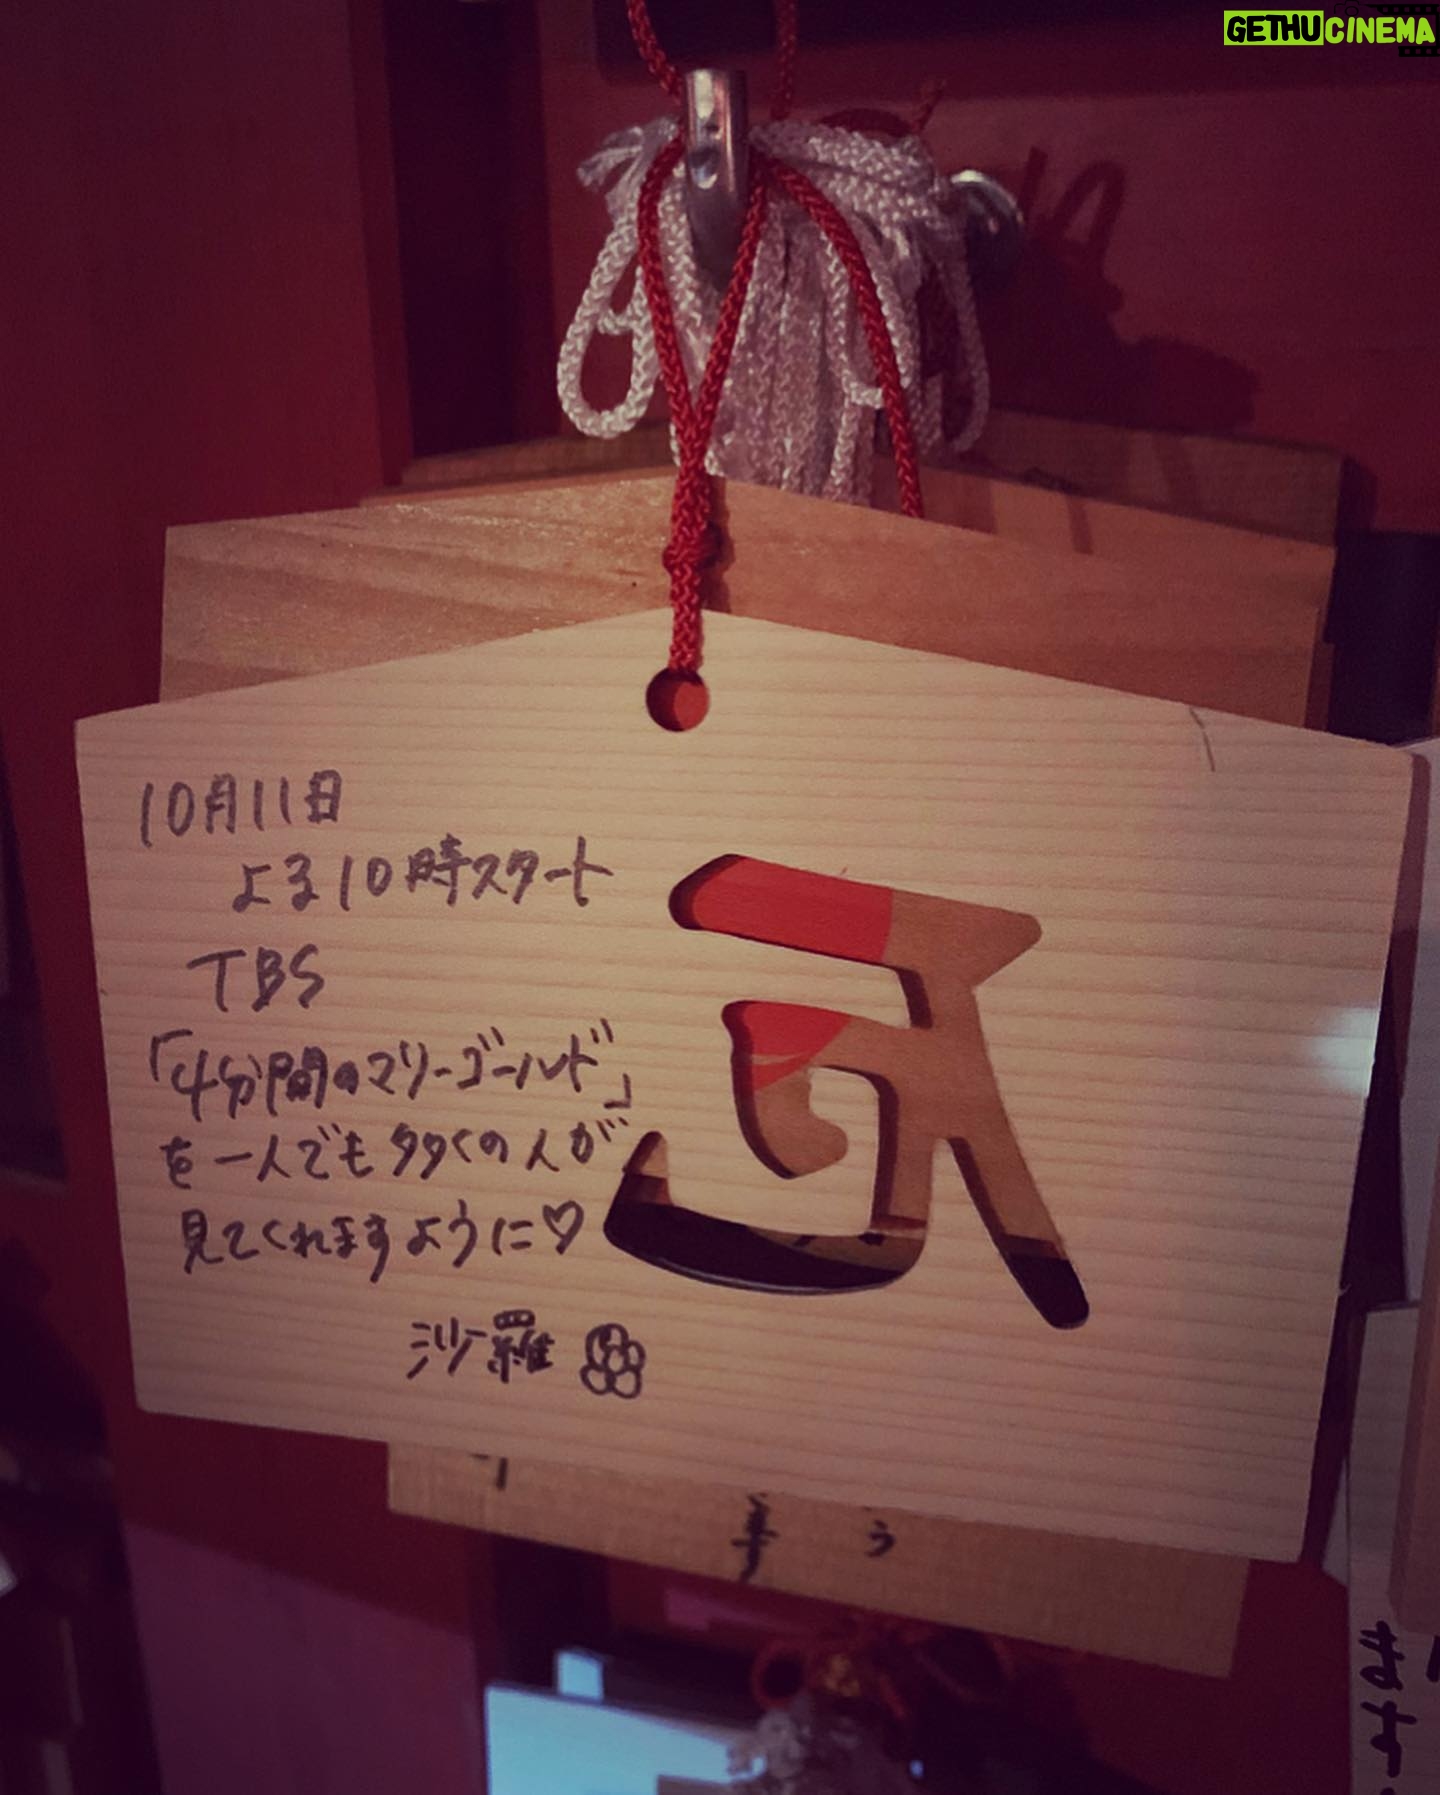 GETHUCINEMA
10月11日
よる10時スタート
TBS
「4分間のマリーゴールド」
を一人でも多くの人が
見てくれますように♡
沙羅
う